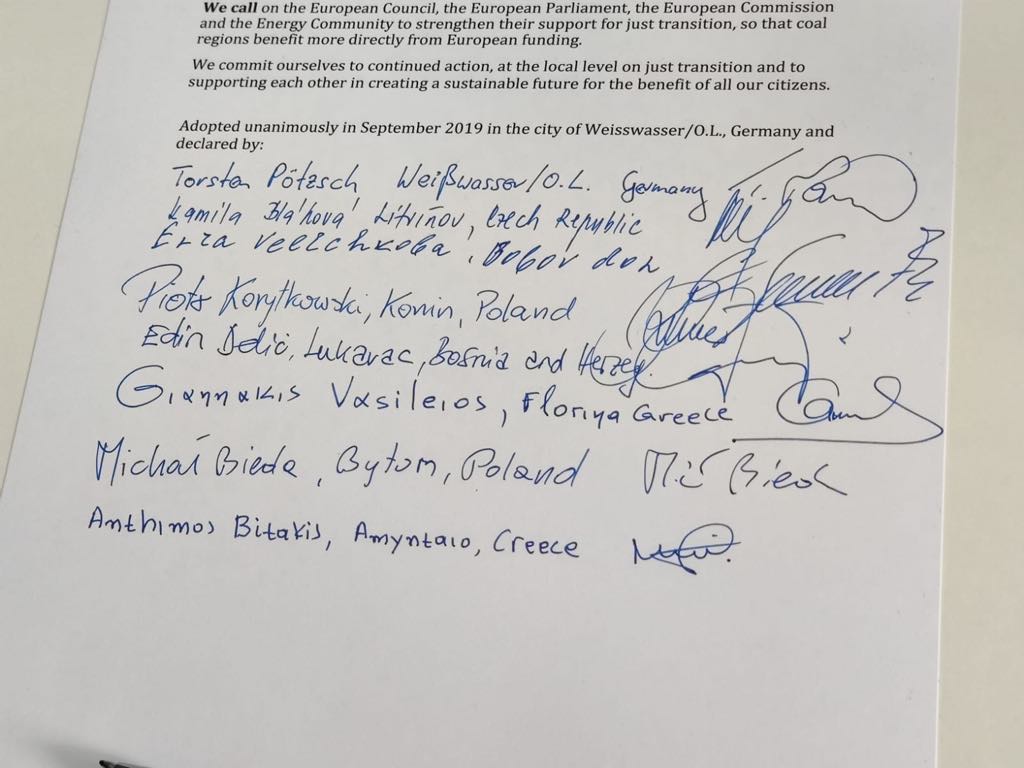 We call on the European Council, the European Parliament, the European Commission
and the Energy Community to strengthen their support for just transition, so that coal
regions benefit more directly from European funding.
We commit ourselves to continued action, at the local level on just transition and to
supporting each other in creating a sustainable future for the benefit of all our citizens.
Adopted unanimously in September 2019 in the city of Weisswasser/O.L., Germany and
declared by:
Torsten Pötzsch Weißwasser/O.L. Germany
Kamila Bláhová Litvínov, Czech Republic
Velichkova, Bobov dol
Piotr Korytkowski, Konin, Poland
Edin Delić, Lukavac, Bosnia and Herzeg.
Giannakis Vasileios, Florina Greece
Michał Bieda, Bytom, Poland Bieda
Anthimos Bitakis, Amyntaio, Greece